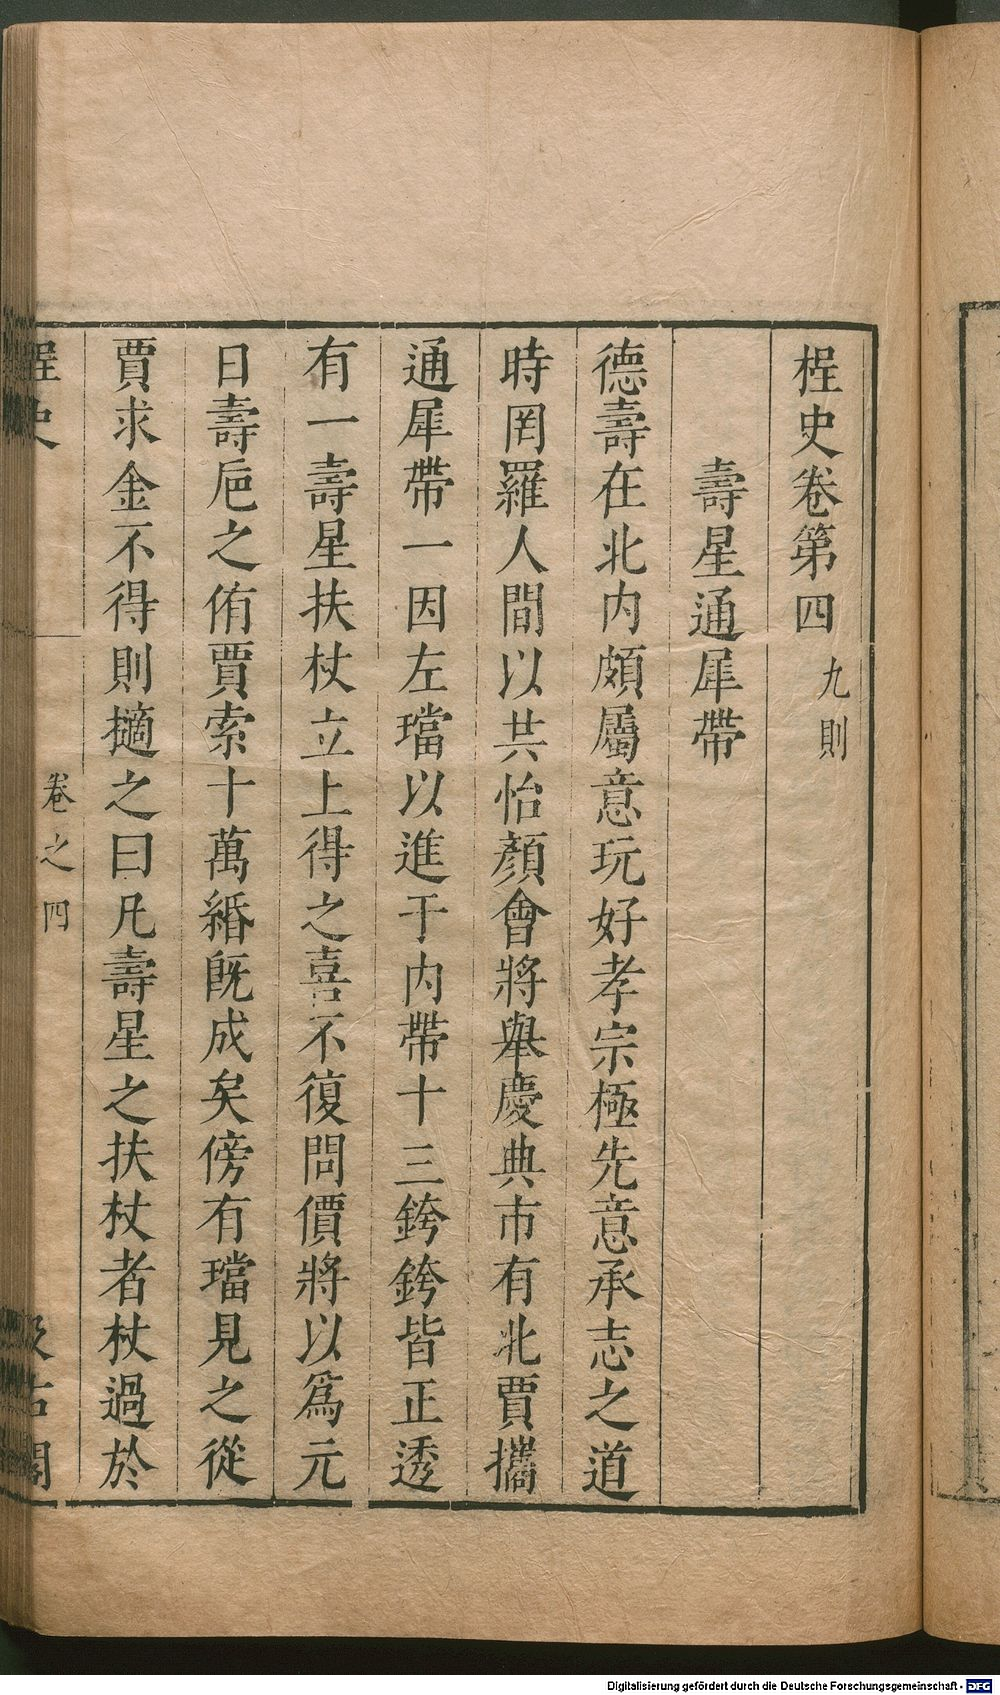 桯史卷第四 九則
壽星通犀帶
德壽在北内頗屬意玩好孝宗極先意承志之道
時罔羅人間以共怡顏會將舉慶典市有北賈攜
通犀帶一因左璫以進于内帶十三銙銙皆正透
有一壽星扶杖立上得之喜不復問價將以爲元
日壽巵之侑賈索十萬緡旣成矣傍有璫見之從
賈求金不得則擿之曰凡壽星之扶杖者杖過於
桯史 卷之四 汲古閣
Digitalisierung gefördert durch die Deutsche Forschungsgemeinschaft - DFG